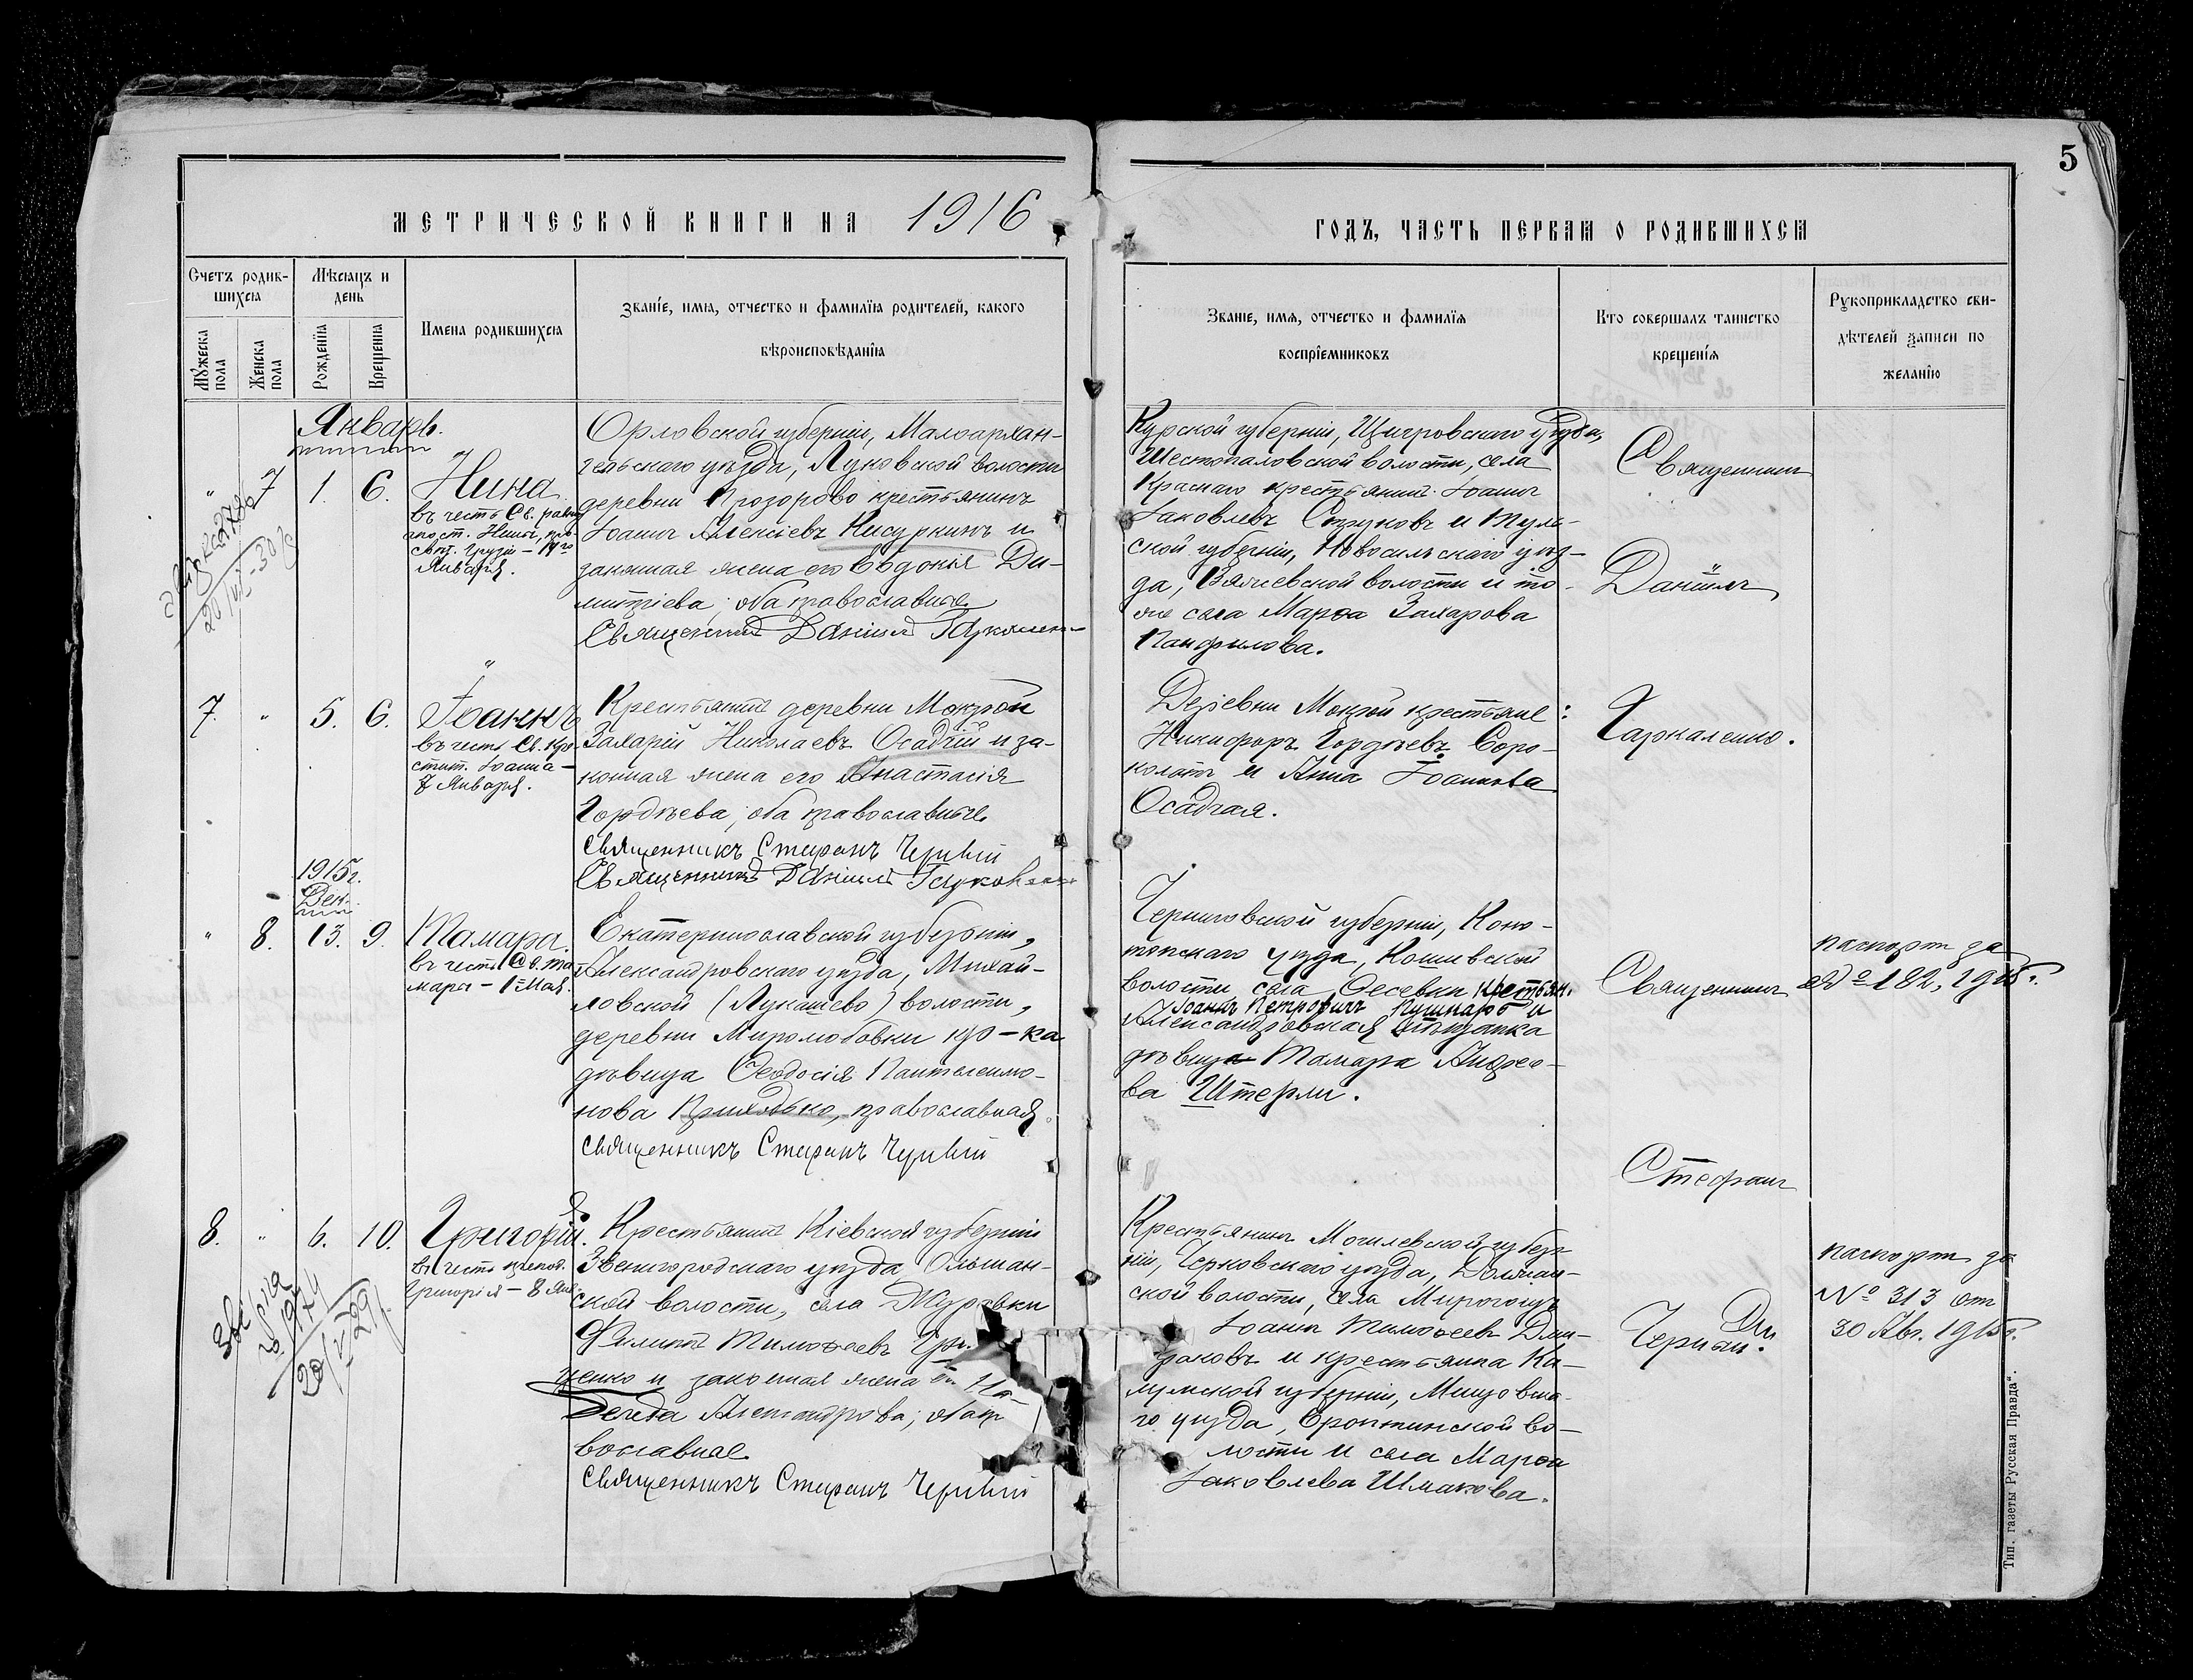 5
МЕТРИЧЕСКОЙ КНИГИ НА 1916
ГОДЪ, ЧАСТЬ ПЕРВАЯ О РОДИВШИХСЯ
Счетъ родив-
шихся
Мѣсяцъ и
день
Мужеска
пола
Женска
пола
Рожденія
Крещенія
Имена родившихся
Званіе, имя, отчество и фамилія родителей, какого
вѣроисповѣданія
Званіе, имя, отчество и фамилія
воспріемниковъ
Кто совершалъ таинство
крещенія
Рукоприкладство сви-
дѣтелей записи по
желанію
Январь.
" 7 1. 6. Нина
въ честь Св. равно
апост. Нины, про-
свѣт. Грузіи – 14го
Января.
Орловской губерніи, Малоархан-
гельскаго уѣзда, Луковской волости
деревни Прозорово крестьянинъ
Іоаннъ Алексіевъ и
законная жена его Евдокія Ди-
митріева; оба православные
Священникъ Даніилъ
Курской губерніи, Щигровскаго уѣзда,
Шестопаловской волости, села
Краснаго крестьянинъ Іоаннъ
Іаковлевъ Струковъ и Туль-
ской губерніи, Новосильскаго уѣз-
да, волости и то-
же села Марѳа Захарова
Панфилова.
Священникъ
Даніилъ
Гаркаленко.
7. " 5. 6. Іоаннъ
въ честь Св. Кре-
стит. Іоанна –
7 Января.
Крестьянинъ деревни Мокрой
Захарій Николаевъ Осадчій и за-
конная жена его Анастасія
Гордѣева; оба православные.
Священникъ Стефанъ Черный
Священникъ Даніилъ
Деревни Мокрой крестьяне:
Никифоръ Гордѣевъ Соро-
колатъ и Анна Іоаннова
Осадчая.
1915г.
Дек.
" 8. 13. 9. Тамара.
въ честь Св. Та-
мары – 1 Мая.
Екатеринославской губерніи,
Александровскаго уѣзда, Михай-
ловской (Лукашево) волости,
деревни Миролюбовки кр-ка
дѣвица Ѳеодосія Пантелеимо-
нова Приходько, православная.
Священникъ Стефанъ Черный
Черниговской губерніи, Коно-
топскаго уѣзда,
волости села крестьян.
Іоаннъ Петровичъ Пушкарь и
Александровская мѣщанка
дѣвица Тамара Андрее-
ва Штерли.
Священникъ
паспортъ за
№ 182, 1915г.
Стефанъ
Черный.
8. " 6. 10. Григорій.
въ честь препод.
Григорія – 8 Янв.
Крестьянинъ Кіевской губерніи
Звенигородскаго уѣзда Ольшан-
ской волости, села Журавки
Филиппъ Тимоѳеевъ
ценко и законная жена
Александрова; оба
вославные
Священникъ Стефанъ Черный
Крестьянинъ Могилевской губер-
ніи, уѣзда,
ской волости, села
Іоаннъ Тимоѳеевъ
и крестьянка Ка-
лужской губерніи, Мещовска-
го уѣзда, во-
лости и села Марѳа
Іаковлева Шмакова.
паспортъ за
№ 313 от
30 Авг. 1915г.
Тип. газеты Русская Правда“.